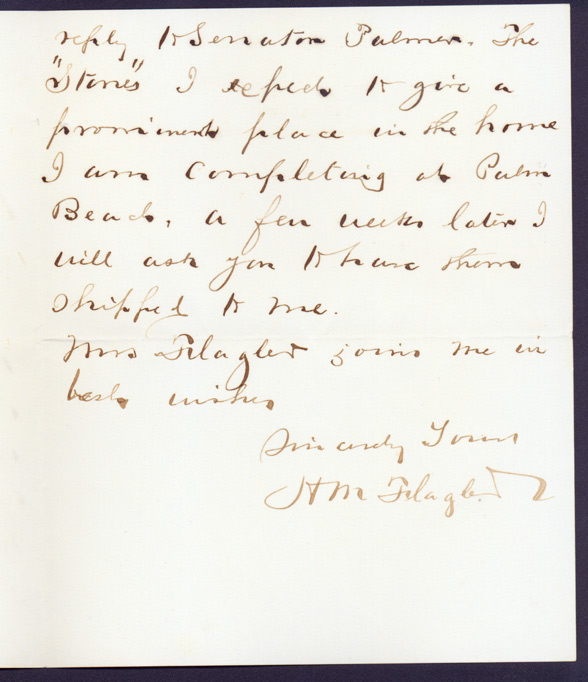 reply to Senator Palmer. The
"Stories" I expect to give a
prominent place in the home
I am completing at Palm
Beach, a few weeks later I
will ask you to have them
shipped to me.
Mrs Flagler joins me in
best wishes
Sincerely Yours
HM Flagler